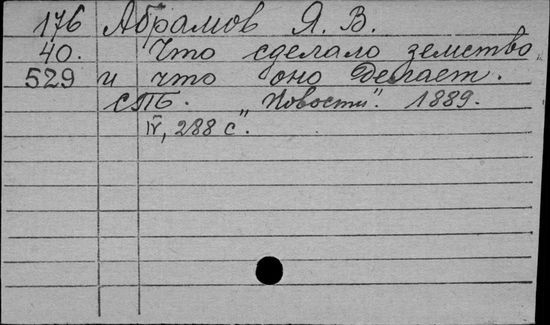 176 Абрамов Я. В.
40. Что сделало земство
529 и что оно делает.
СПБ. "Новости". 1889.
IV, 288 с.